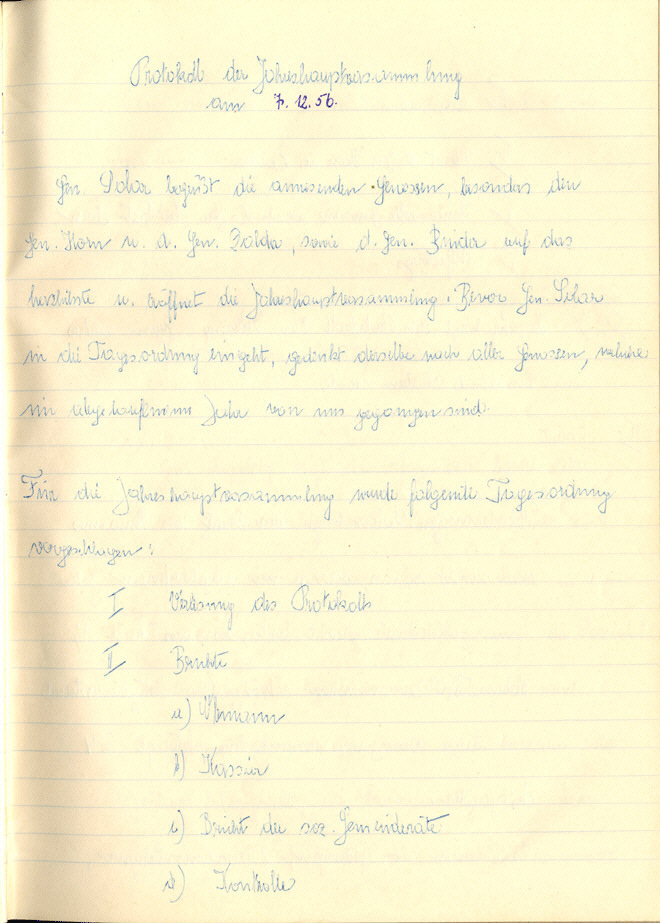 Protokoll der Jahreshauptversammlung
am 7.12.56.
Gen. Solar begrüßt die anwesenden Genossen, besonders den
Gen. Korn u. d. Gen. Zolda, sowie d. Gen. Binder auf das
herzlichste u. eröffnet die Jahreshauptversammlung. Bevor Gen. Solar
in die Tagesordnung eingeht, gedenkt derselbe noch aller Genossen, welche
im abgelaufenem Jahr von uns gegangen sind.
Für die Jahreshauptversammlung wurde folgende Tagesordnung
vorgeschlagen:
I Verlesung des Protokolls
II Berichte
a) Obmann
b) Kassier
c) Bericht der soz. Gemeinderäte
d) Kontrolle